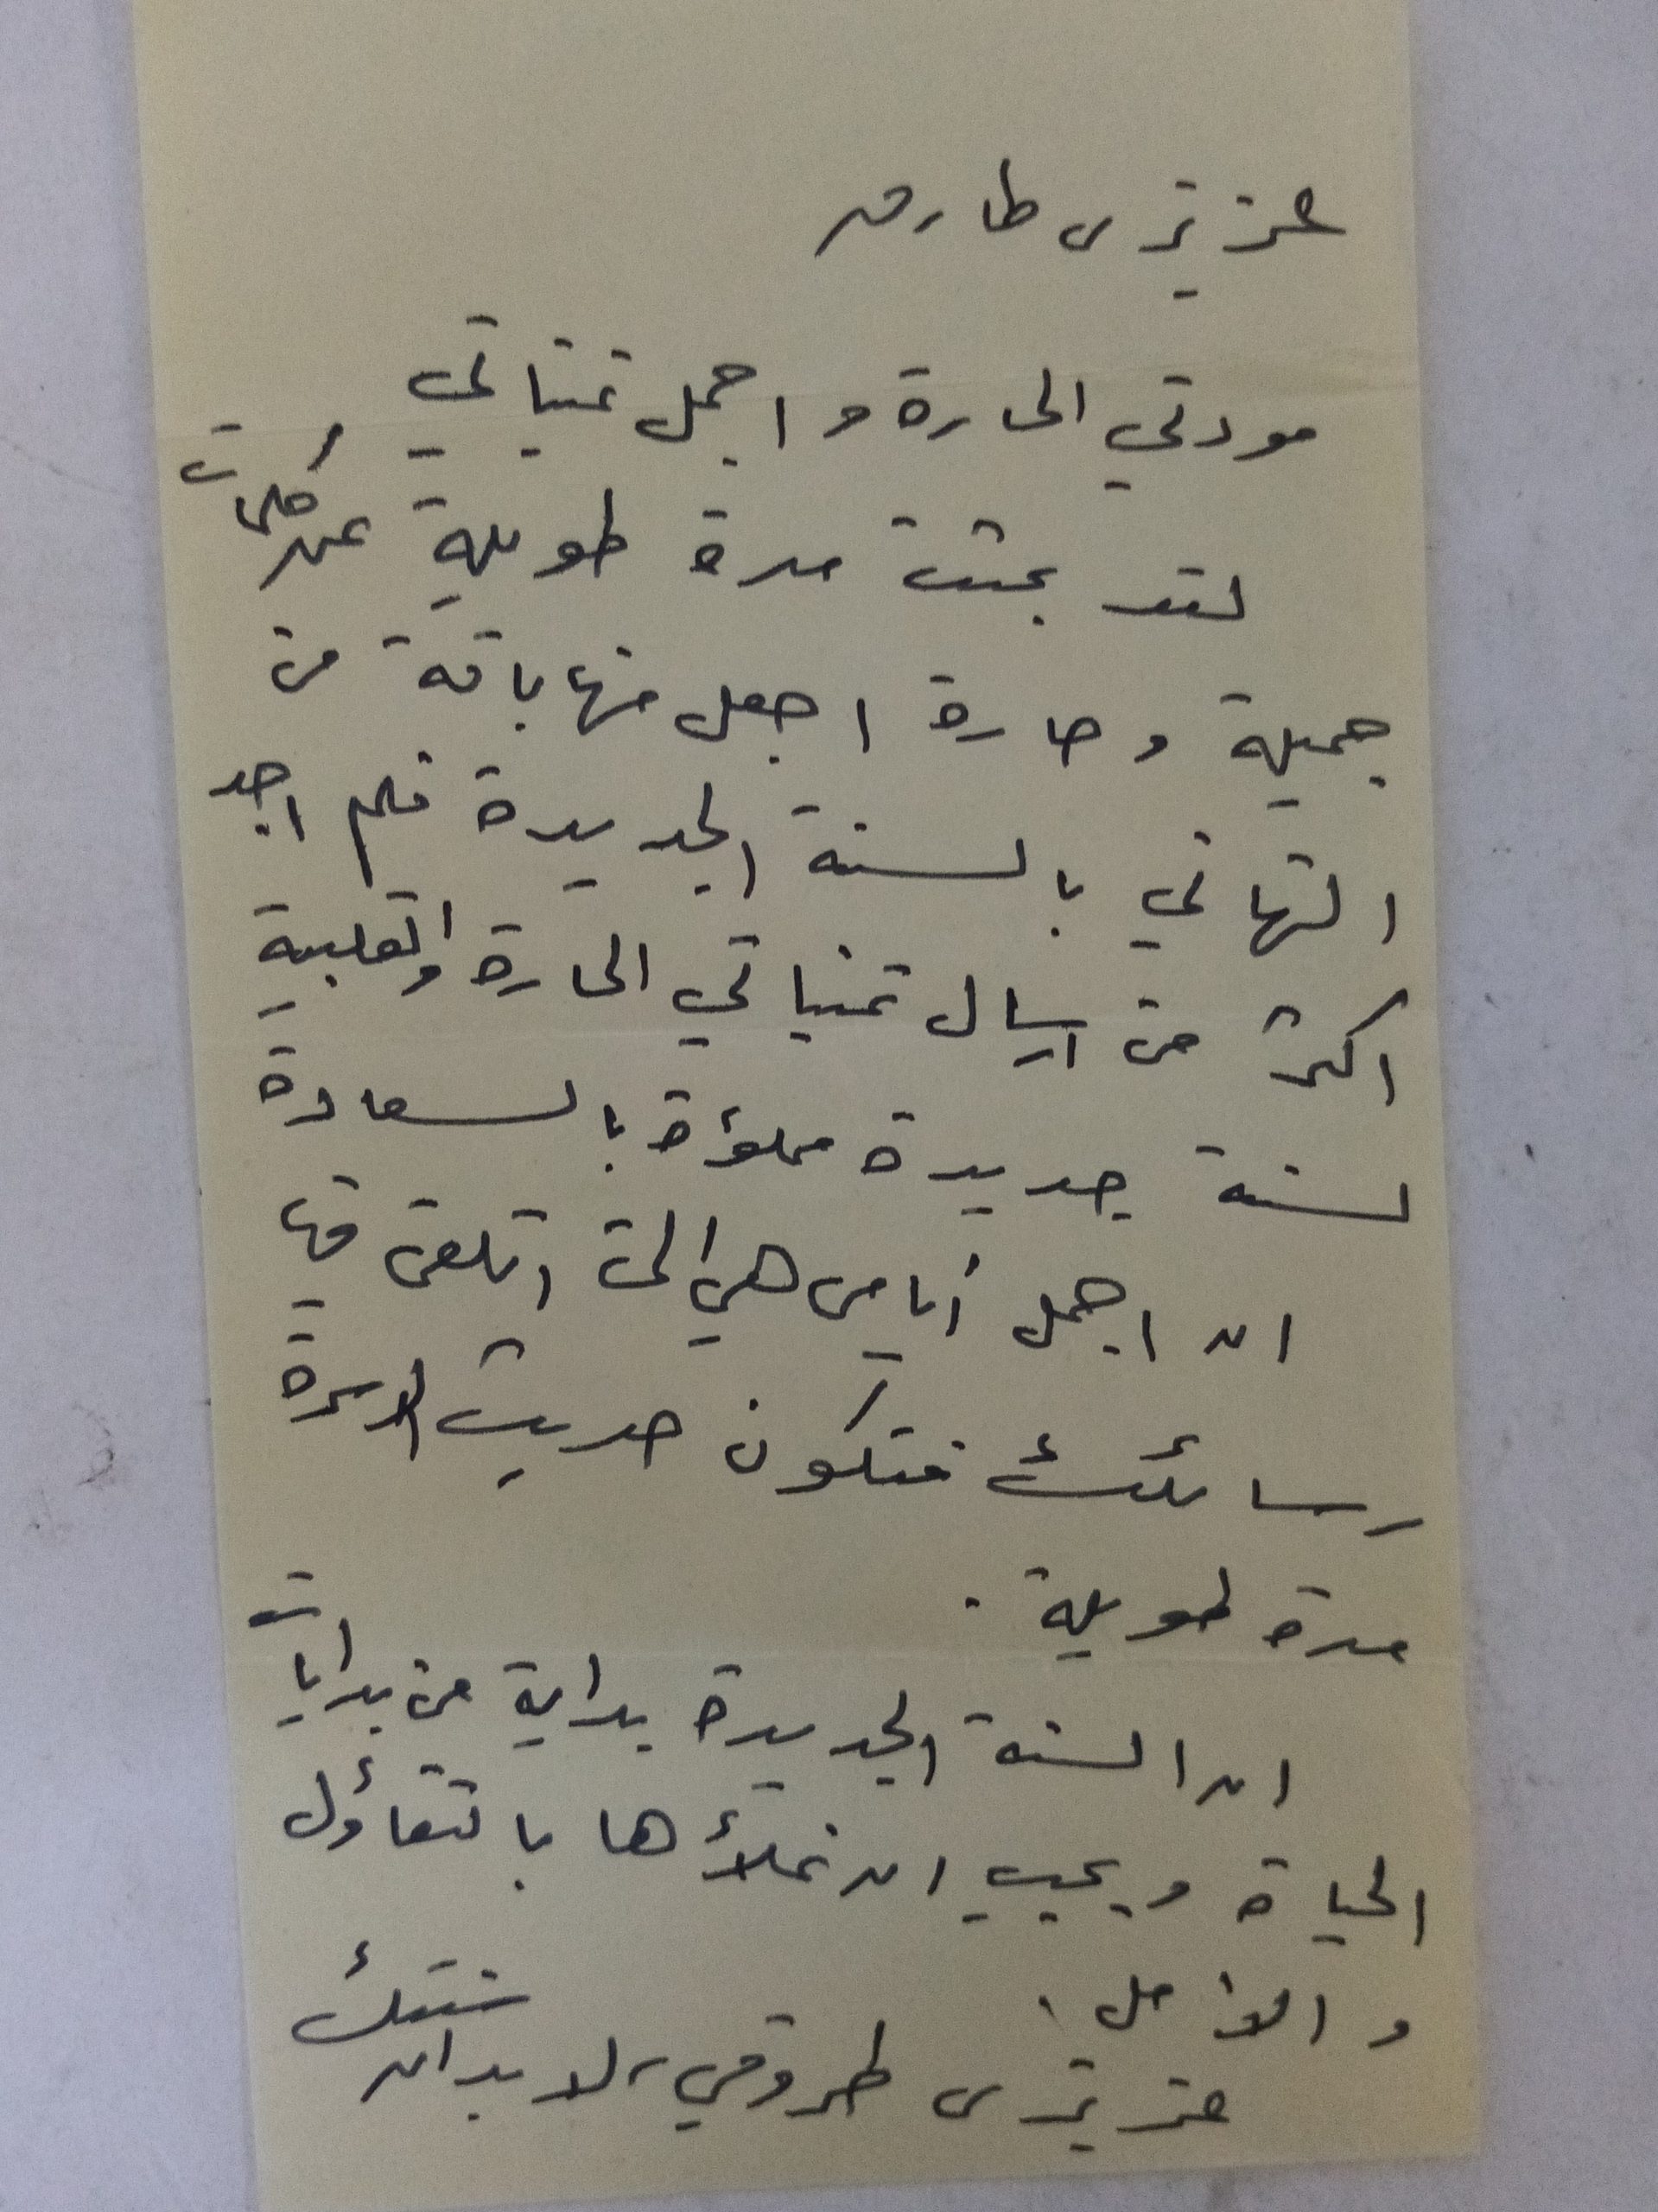 عزيزي طارق
مودتي الحارة و اجمل تمنياتي
لقد بحثت مدة طويلة عن كلمات
جميلة و حارة اجعل منها باقة من
التهاني بالسنة الجديدة فلم اجد
اكثر من ارسال تمنياتي الحارة والقلبية
لسنة جديدة مملؤة بالسعادة
ان اجمل أيامي هي التي اتلقى فيها
رسائلك فتكون حديث الاسرة
مدة طويلة .
ان السنة الجديدة بداية من بدايات
الحياة و يجب ان نملأها بالتفاؤل
و الأمل .
عزيزي طروقي، لا بد ان